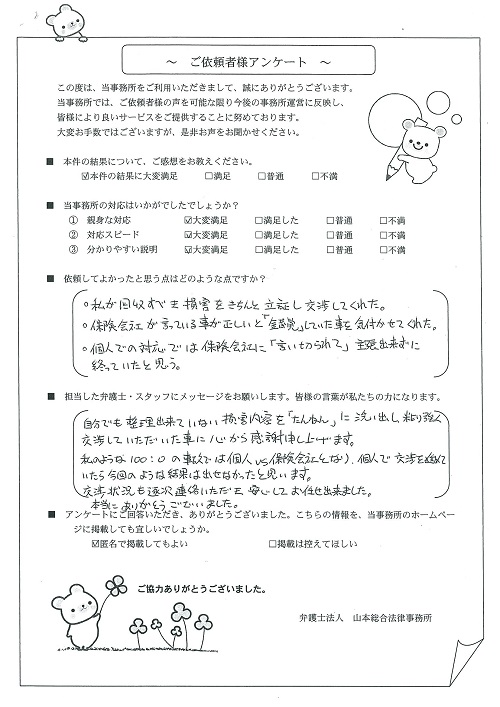 ～ ご依頼者様アンケート ～
この度は、当事務所をご利用いただきまして、誠にありがとうございます。
当事務所では、ご依頼者様の声を可能な限り今後の事務所運営に反映し、
皆様により良いサービスをご提供することに努めております。
大変お手数ではございますが、是非お声をお聞かせください。
■ 本件の結果について、ご感想をお教えください。
☑本件の結果に大変満足 □満足 □普通 □不満
■ 当事務所の対応はいかがでしたでしょうか？
① 親身な対応 ☑大変満足 □満足した □普通 □不満
② 対応スピード ☑大変満足 □満足した □普通 □不満
③ 分かりやすい説明 ☑大変満足 □満足した □普通 □不満
■ 依頼してよかったと思う点はどのような点ですか？
○私が回収すべき損害をきちんと立証し交渉してくれた。
○保険会社が言っている事が正しいと「錯覚」していた事を気付かせてくれた。
○個人での対応では保険会社に「言い切られて」主張出来ずに
終っていたと思う。
■ 担当した弁護士・スタッフにメッセージをお願いします。皆様の言葉が私たちの力になります。
自分でも整理出来ていない損害内容を「たんねん」に洗い出し、粘り強く
交渉していただいた事に心から感謝申し上げます。
私のような100:0の事故では個人vs保険会社となり、個人で交渉を進めて
いたら今回のような結果は出せなかったと思います。
交渉状況も逐次連絡いただき、安心してお任せ出来ました。
本当にありがとうございました。
■ アンケートにご回答いただき、ありがとうございました。こちらの情報を、当事務所のホームペー
ジに掲載しても宜しいでしょうか。
☑匿名で掲載してもよい □掲載は控えてほしい
ご協力ありがとうございました。
弁護士法人 山本総合法律事務所